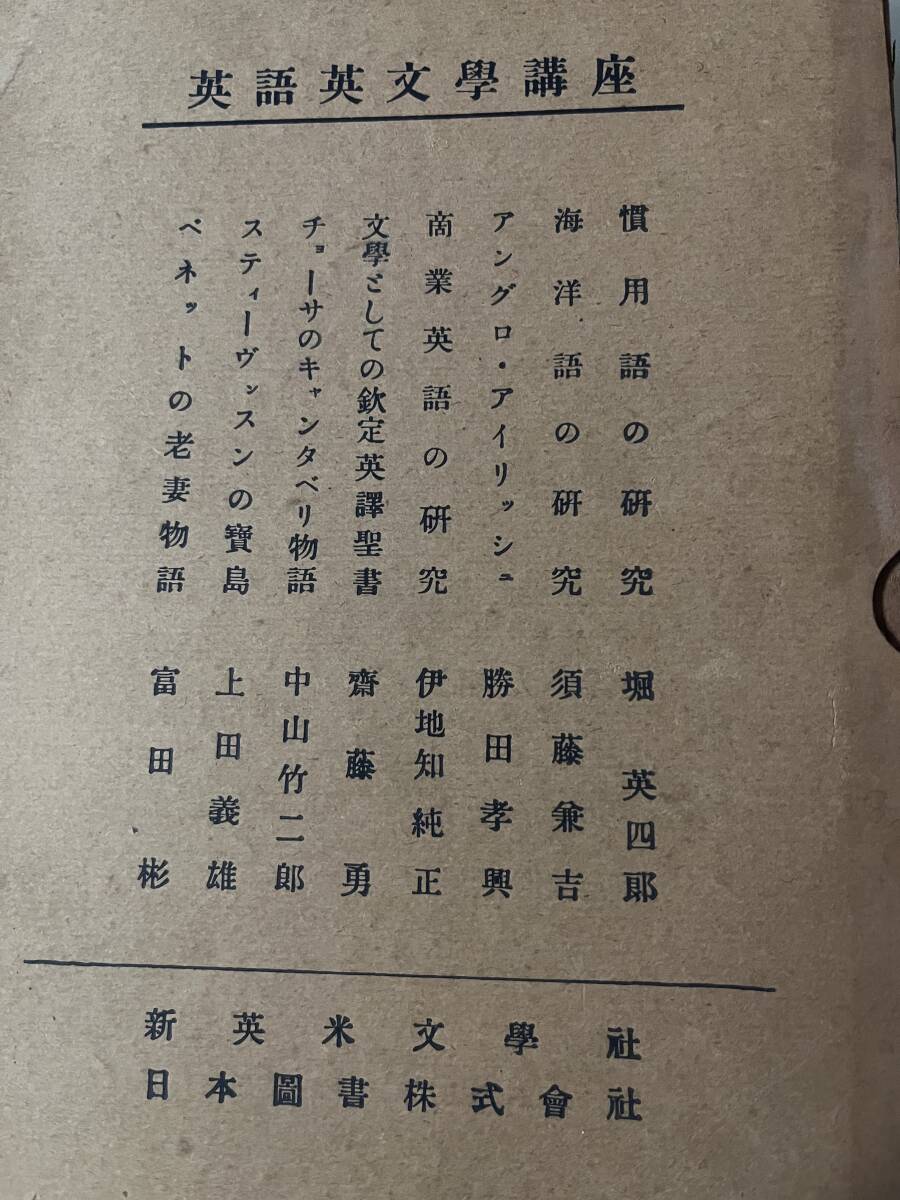 英語英文學講座
慣用語の研究 堀英四郎
海洋語の研究 須藤兼吉
アングロ・アイリッシュ 勝田孝興
商業英語の研究 伊地知純正
文學としての欽定英譯聖書 齋藤勇
チョーサのキャンタベリ物語 中山竹二郎
スティーヴンスンの寶島 上田義雄
ベネットの老妻物語 富田彬
新英米文學社
日本圖書株式會社